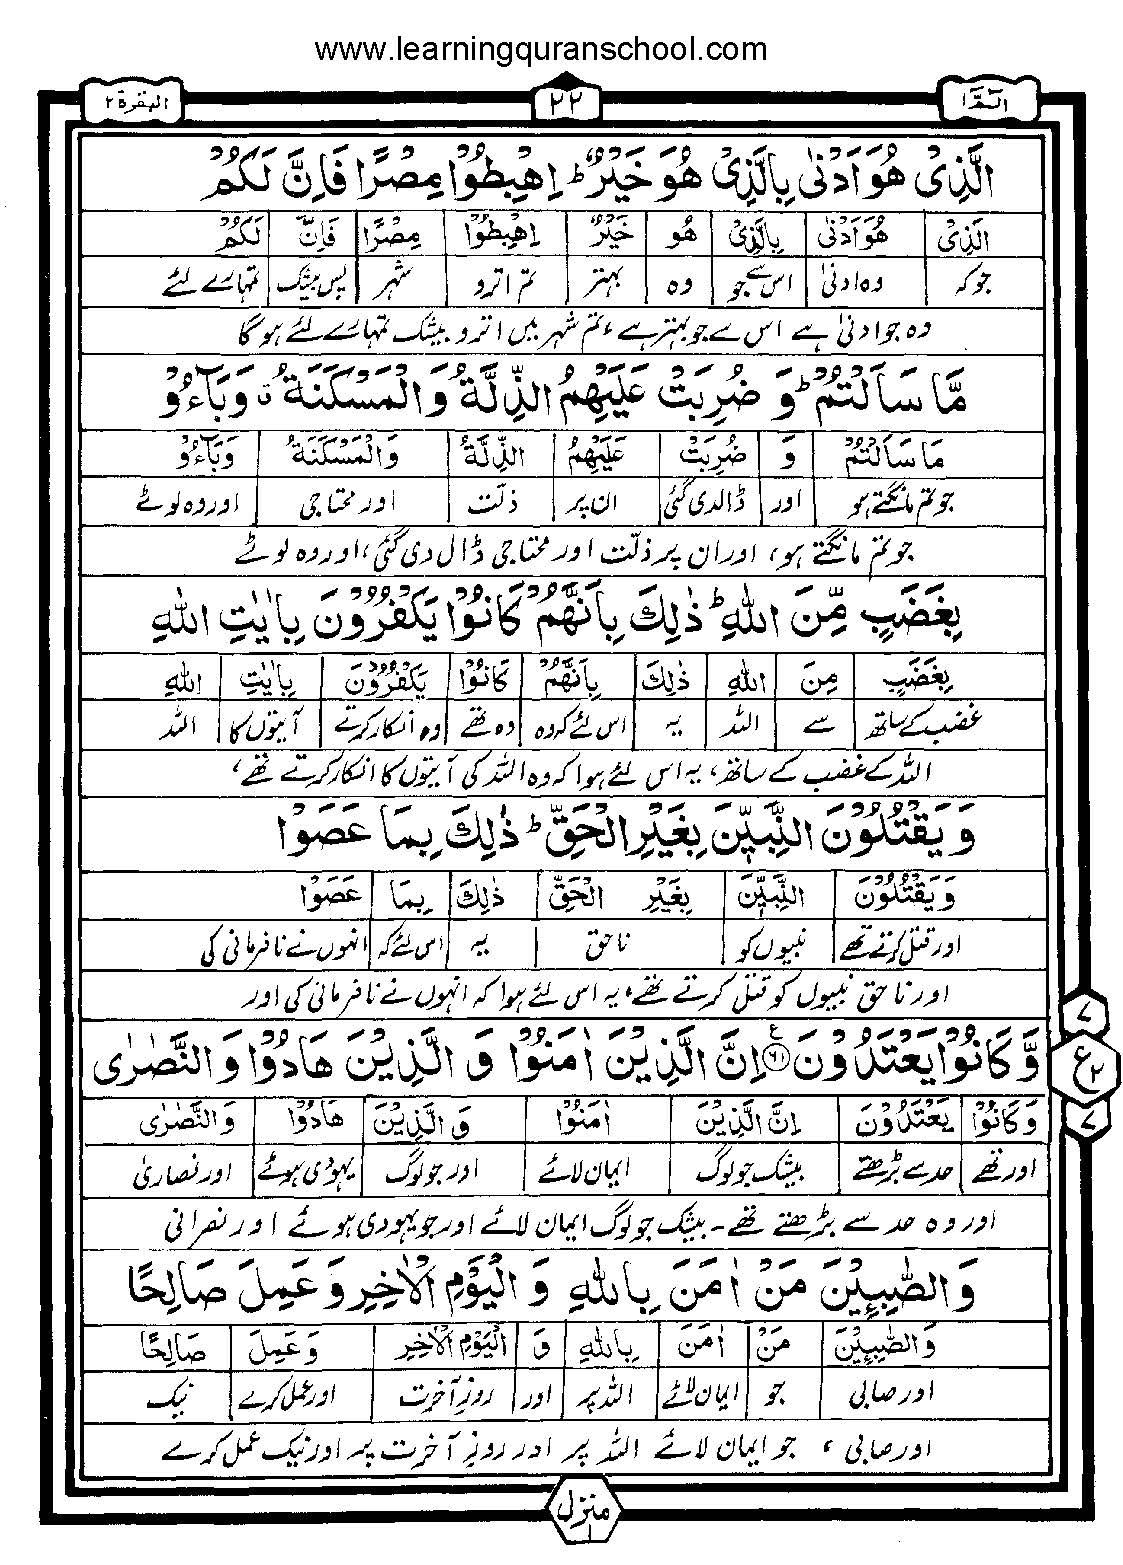 www.learningquranschool.com
الٓمّٓ ١ ٢٢ البقرة ٢
الَّذِیْ هُوَ اَدْنٰی بِالَّذِیْ هُوَ خَیْرٌ ؕ اِهْبِطُوْا مِصْرًا فَاِنَّ لَكُمْ
الَّذِیْ هُوَ اَدْنٰی بِالَّذِیْ هُوَ خَیْرٌ اِهْبِطُوْا مِصْرًا فَاِنَّ لَكُمْ
جو کہ وہ ادنیٰ اس سے جو وہ بہتر تم اترو شہر پس بیشک تمہارے لئے
وہ جو ادنیٰ ہے اس سے جو بہتر ہے، تم شہر میں اترو بیشک تمہارے لئے ہو گا
مَّا سَاَلْتُمْ ؕ وَ ضُرِبَتْ عَلَیْهِمُ الذِّلَّةُ وَ الْمَسْكَنَةُ ۗ وَبَآءُوْ
مَا سَاَلْتُمْ وَ ضُرِبَتْ عَلَیْهِمُ الذِّلَّةُ وَالْمَسْكَنَةُ وَبَآءُوْ
جو تم مانگتے ہو اور ڈالدی گئی ان پر ذلّت اور محتاجی اور وہ لوٹے
جو تم مانگتے ہو، اور ان پر ذلّت اور محتاجی ڈال دی گئی، اور وہ لوٹے
بِغَضَبٍ مِّنَ اللّٰهِ ؕ ذٰلِكَ بِاَنَّهُمْ كَانُوْا یَكْفُرُوْنَ بِاٰیٰتِ اللّٰهِ
بِغَضَبٍ مِنَ اللّٰهِ ذٰلِكَ بِاَنَّهُمْ كَانُوْا یَكْفُرُوْنَ بِاٰیٰتِ اللّٰهِ
غضب کے ساتھ سے اللہ یہ اس لئے کہ وہ وہ تھے وہ انکار کرتے آیتوں کا اللہ
اللہ کے غضب کے ساتھ، یہ اس لئے ہوا کہ وہ اللہ کی آیتوں کا انکار کرتے تھے،
وَ یَقْتُلُوْنَ النَّبِیّٖنَ بِغَیْرِ الْحَقِّ ؕ ذٰلِكَ بِمَا عَصَوْا
وَیَقْتُلُوْنَ النَّبِیّٖنَ بِغَیْرِ الْحَقِّ ذٰلِكَ بِمَا عَصَوْا
اور قتل کرتے تھے نبیوں کو ناحق یہ اس لئے کہ انہوں نے نافرمانی کی
اور ناحق نبیوں کو قتل کرتے تھے، یہ اس لئے ہوا کہ انہوں نے نافرمانی کی اور
وَّ كَانُوْا یَعْتَدُوْنَ ۟ ع ٦١ اِنَّ الَّذِیْنَ اٰمَنُوْا وَ الَّذِیْنَ هَادُوْا وَ النَّصٰرٰی
وَ كَانُوْا یَعْتَدُوْنَ اِنَّ الَّذِیْنَ اٰمَنُوْا وَ الَّذِیْنَ هَادُوْا وَ النَّصٰرٰی
اور تھے حد سے بڑھتے بیشک جو لوگ ایمان لائے اور جو لوگ یہودی ہوئے اور نصاریٰ
اور وہ حد سے بڑھتے تھے ۔ بیشک جو لوگ ایمان لائے اور جو یہودی ہوئے اور نصرانی
وَالصّٰبِـِٕیْنَ مَنْ اٰمَنَ بِاللّٰهِ وَ الْیَوْمِ الْاٰخِرِ وَ عَمِلَ صَالِحًا
وَالصّٰبِـِٕیْنَ مَنْ اٰمَنَ بِاللّٰهِ وَ الْیَوْمِ الْاٰخِرِ وَ عَمِلَ صَالِحًا
اور صابی جو ایمان لائے اللہ پر اور روزِ آخرت اور عمل کرے نیک
اور صابی، جو ایمان لائے اللہ پر اور روزِ آخرت پر اور نیک عمل کرے
٧
ع ٢
٧
منزل ١